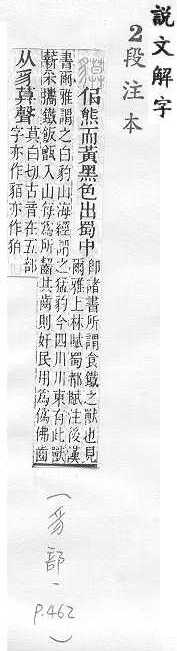 說文解字
2段注本
貘佀熊而黃黑色出蜀中即諸書所謂食鐵之獸也見
爾雅上林賦蜀都賦注後漢
書爾雅謂之白豹山海經謂之猛豹今四川川東有此獸
薪采攜鐵飯甑入山每爲所齧其齒則奸民用爲僞佛齒
从豸莫聲莫白切古音在五部
字亦作貊亦作狛
(豸部、P.462)